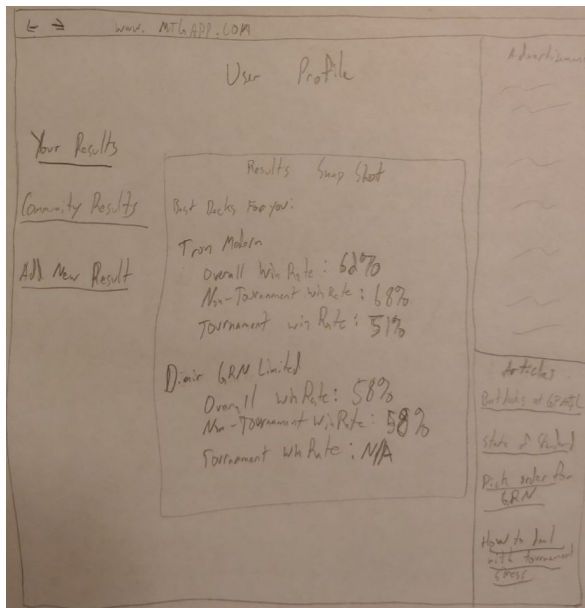 www. MTGAPP.COM
User Profile
Your Results
Community Results
Add New Result
Results Snap Shot
Best Decks For you:
Tron Modern
Overall Win Rate: 62%
Non-Tournament Win Rate: 68%
Tournament win Rate: 51%
Dimir GRN Limited
Overall Win Rate: 58%
Non-Tournament Win Rate: 58%
Tournament Win Rate: N/A
Articles
Best decks at
State of Standard
Pick order for
GRN
How to deal
with tournament
stress